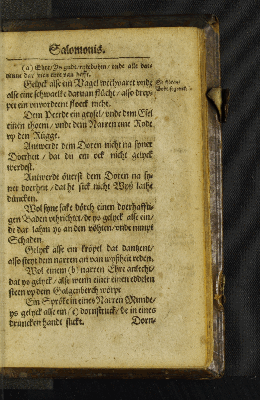 Salomonis.
(a) Ehre/
dat
Gelyck alse ein Vagel wechvaret vnde
alse eine schwalcke daruan flücht/also drep-
pet ein vnvordeent floeck nicht.
Dem Perde ein geysel/vnde dem Esel
einen thoem/vnde dem Narren eine Rode
vp den Rügge.
Antwerde dem Doren nicht na syner
Dorheit/dat du em ock nicht gelyck
werdest.
Antwerde öuerst dem Doren na sy-
ner dorheit/dat he sick nicht Wyß lathe
düncken.
Wol syne sake dörch einen dorhaffti-
gen Baden vthrichtet/de ys gelyck alse ein/
de dar lahm ys an den vöhten/vnde nimpt
Schaden.
Gelyck alse ein kröpel dat dantzent/
also steyt dem narren an van wyßheit reden.
Wol einem (b) narren Ehre anlecht/
dat ys gelyck/alse wenn einer einen eddelen
steen vp dem Galgenberch wörpe.
Ein Spröke in eines Narren Munde/
ys gelyck alse ein (c) dornstruck/de in eines
druncken handt stickt.
Dorn-